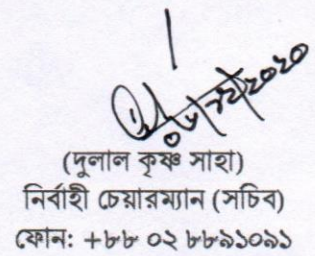 (দুলাল কৃষ্ণ সাহা)
নির্বাহী চেয়ারম্যান (সচিব)
ফোন: +৮৮ ০২ ৮৮৯১০৯১